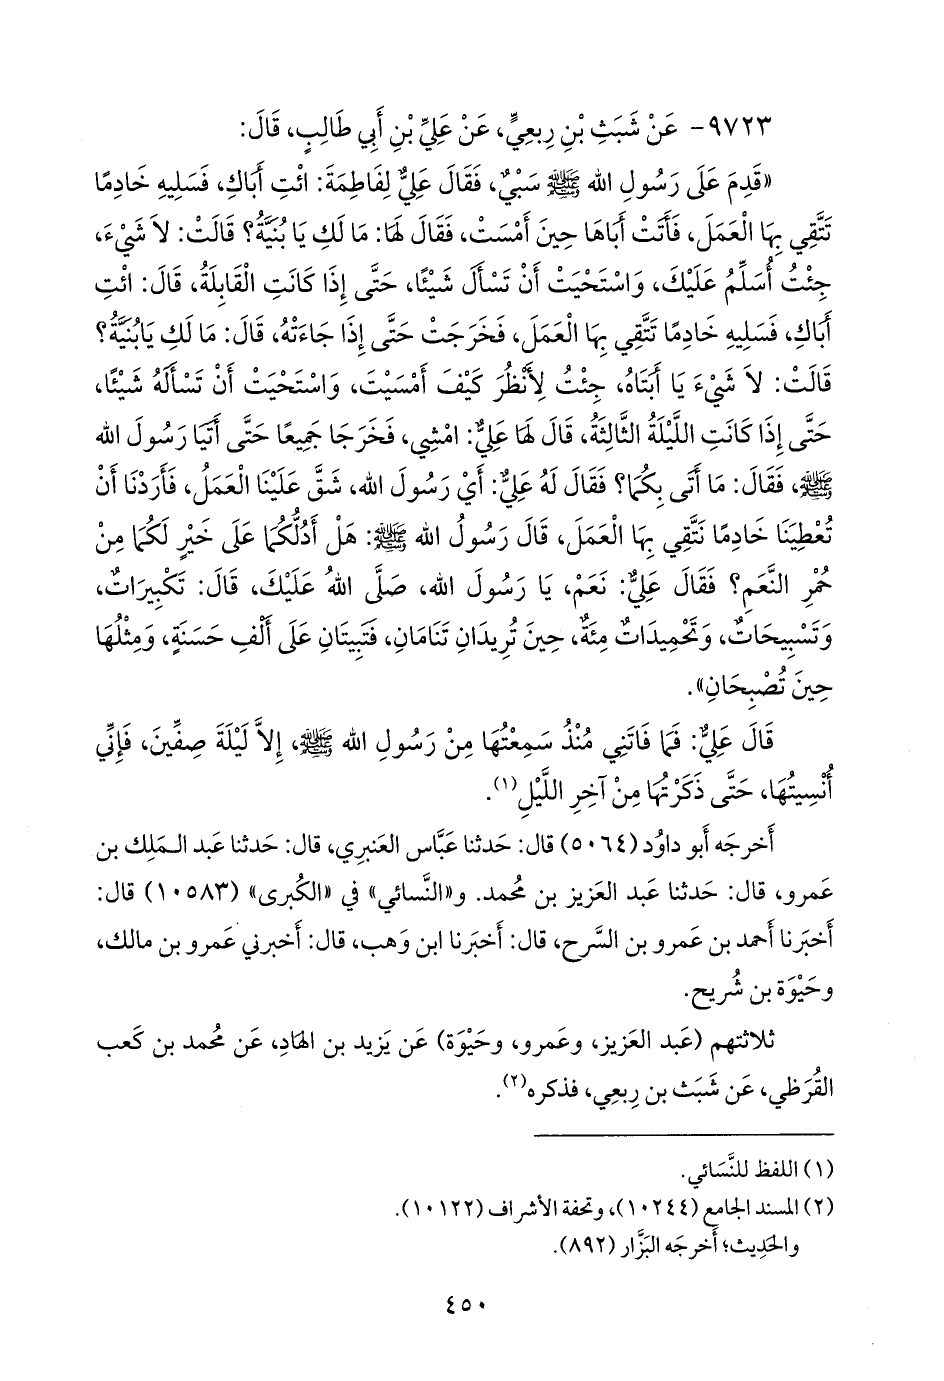 ٩٧٢٣- عَنْ شَبَثِ بْنِ رِبعِيٍّ، عَنْ عَلِيِّ بْنِ أَبِي طَالِبٍ، قَالَ:
«قَدِمَ عَلَى رَسُولِ الله ﷺ سَبْيٌ، فَقَالَ عَلِيٌّ لِفَاطِمَةَ: ائْتِ أَبَاكِ، فَسَلِيهِ خَادِمًا
تَتَّقِي بِهَا الْعَمَلَ، فَأَتَتْ أَبَاهَا حِينَ أَمْسَتْ، فَقَالَ لَهَا: مَا لَكِ يَا بُنَيَّةُ؟ قَالَتْ: لاَ شَيْءَ،
جِئْتُ أُسَلِّمُ عَلَيْكَ، وَاسْتَحْيَتْ أَنْ تَسْأَلَ شَيْئًا، حَتَّى إِذَا كَانَتِ الْقَابِلَةُ، قَالَ: ائْتِ
أَبَاكِ، فَسَلِيهِ خَادِمًا تَتَّقِي بِهَا الْعَمَلَ، فَخَرَجَتْ حَتَّى إِذَا جَاءَتْهُ، قَالَ: مَا لَكِ يَابُنَيَّةُ؟
قَالَتْ: لاَ شَيْءَ يَا أَبَتَاهُ، جِئْتُ لِأَنْظُرَ كَيْفَ أَمْسَيْتَ، وَاسْتَحْيَتْ أَنْ تَسْأَلَهُ شَيْئًا،
حَتَّى إِذَا كَانَتِ اللَّيْلَةُ الثَّالِثَةُ، قَالَ لَهَا عَلِيٌّ: امْشِي، فَخَرَجَا جَمِيعًا حَتَّى أَتَيَا رَسُولَ الله
ﷺ، فَقَالَ: مَا أَتَى بِكُمَا؟ فَقَالَ لَهُ عَلِيٌّ: أَيْ رَسُولَ الله، شَقَّ عَلَيْنَا الْعَمَلُ، فَأَرَدْنَا أَنْ
تُعْطِيَنَا خَادِمًا نَتَّقِي بِهَا الْعَمَلَ، قَالَ رَسُولُ الله ﷺ: هَلْ أَدُلُّكُمَا عَلَى خَيْرٍ لَكُمَا مِنْ
حُمْرِ النَّعَمِ؟ فَقَالَ عَلِيٌّ: نَعَمْ، يَا رَسُولَ الله، صَلَّى اللهُ عَلَيْكَ، قَالَ: تَكْبِيرَاتٌ،
وَتَسْبِيحَاتٌ، وَتَحْمِيدَاتٌ مِئَةٌ، حِينَ تُرِيدَانِ تَنَامَانِ، فَتَبِيتَانِ عَلَى أَلْفِ حَسَنَةٍ، وَمِثْلُهَا
حِينَ تُصْبِحَانِ».
قَالَ عَلِيٌّ: فَمَا فَاتَنِي مُنْذُ سَمِعْتُهَا مِنْ رَسُولِ الله ﷺ، إِلاَّ لَيْلَةَ صِفِّينَ، فَإِنِّي
أُنْسِيتُهَا، حَتَّى ذَكَرْتُهَا مِنْ آخِرِ اللَّيْلِ(١).
أَخرجَه أَبو داوُد (٥٠٦٤) قال: حَدثنا عَبَّاس العَنبري، قال: حَدثنا عَبد الـمَلِك بن
عَمرو، قال: حَدثنا عَبد العَزيز بن مُحمد. و«النَّسائي» في «الكُبرى» (١٠٥٨٣) قال:
أَخبَرنا أَحمد بن عَمرو بن السَّرح، قال: أَخبَرنا ابن وَهب، قال: أَخبرني عَمرو بن مالك،
وحَيْوَة بن شُريح.
ثلاثتهم (عَبد العَزيز، وعَمرو، وحَيْوَة) عَن يَزيد بن الهَادِ، عَن مُحمد بن كَعب
القُرَظي، عَن شَبَث بن رِبعِي، فذكره(٢).
(١) اللفظ للنَّسَائي.
(٢) المسند الجامع (١٠٢٤٤)، وتحفة الأشراف (١٠١٢٢).
والحَدِيث؛ أَخرجَه البَزَّار (٨٩٢).
٤٥٠